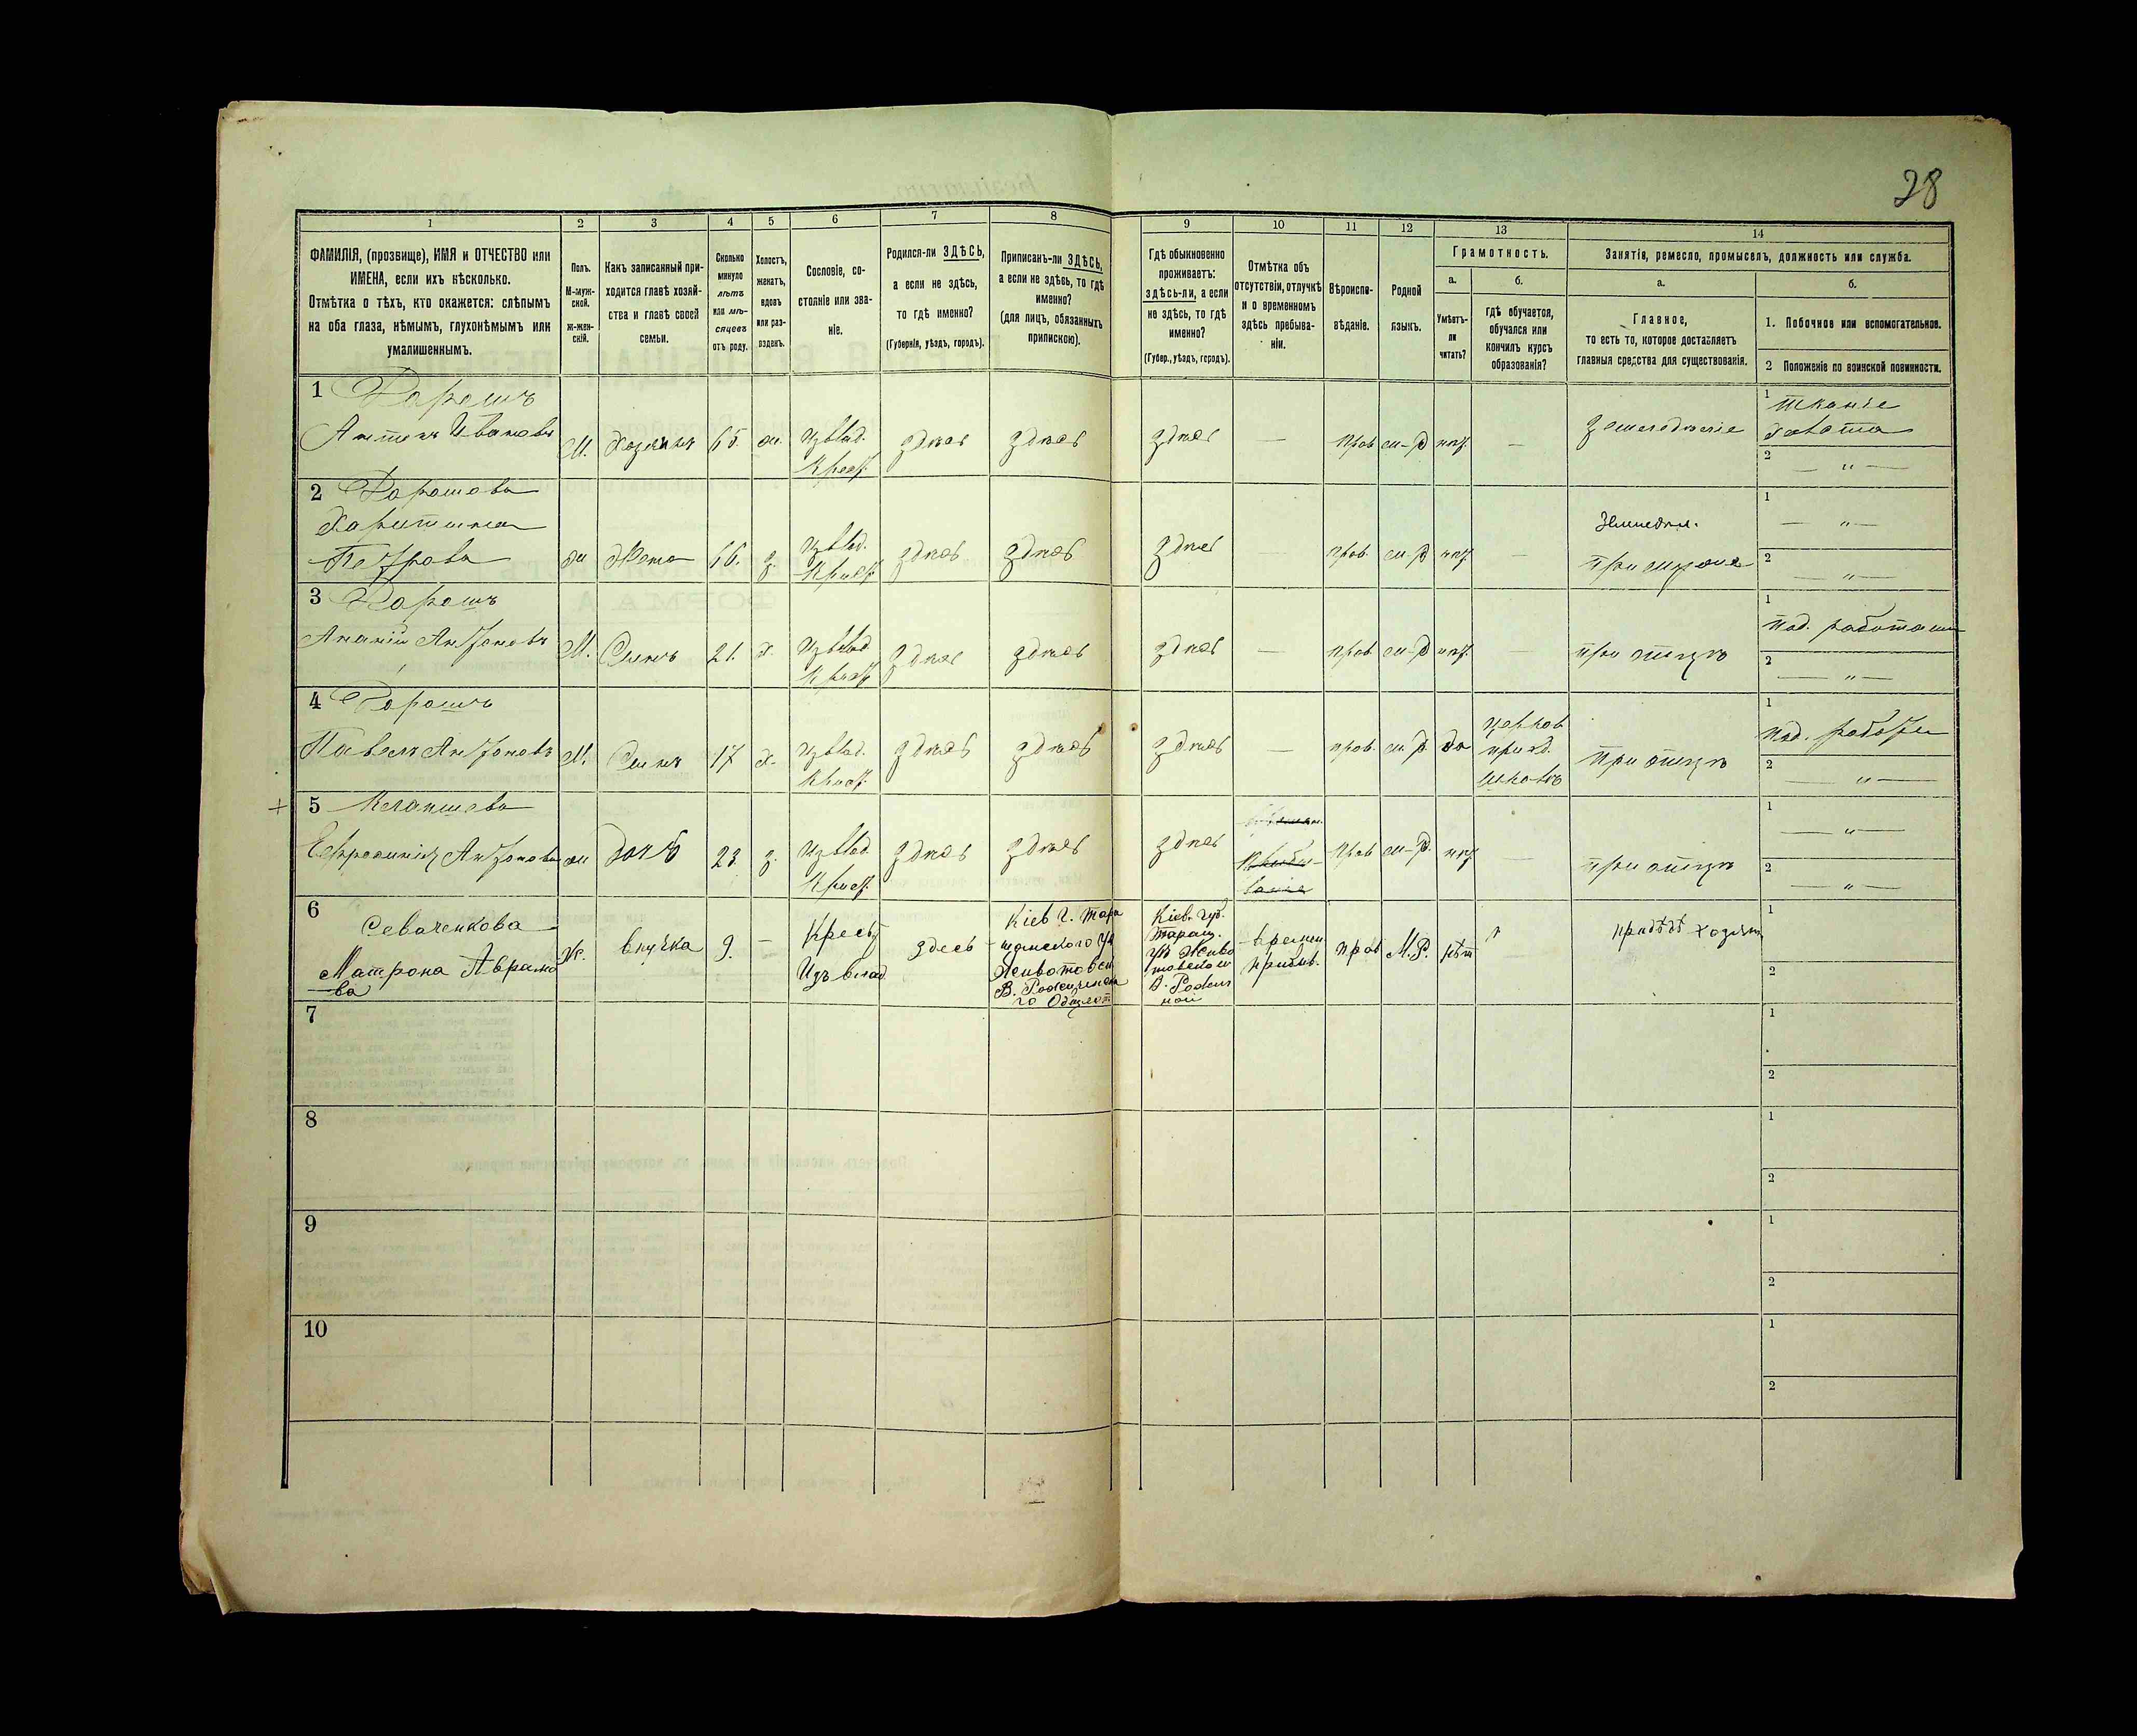 28
1
2
3
4
5
6
7
8
9
10
11
12
13
14
ФАМИЛІЯ, (прозвище), ИМЯ и ОТЧЕСТВО или
ИМЕНА, если ихъ нѣсколько.
Отмѣтка о тѣхъ, кто окажется: слѣпымъ
на оба глаза, нѣмымъ, глухонѣмымъ или
умалишеннымъ.
Полъ.
М-муж-
ской.
ж-жен-
скій.
Какъ записанный при-
ходится главѣ хозяй-
ства и главѣ своей
семьи.
Сколько
минуло
лѣтъ
или мѣ-
сяцевъ
отъ роду.
Холостъ,
женатъ,
вдовъ
или раз-
веденъ.
Сословіе, со-
стояніе или зва-
ніе.
Родился-ли ЗДѢСЬ,
а если не здѣсь,
то гдѣ именно?
(Губернія, уѣздъ, городъ).
Приписанъ-ли ЗДѢСЬ,
а если не здѣсь, то гдѣ
именно?
(для лицъ, обязанныхъ
припискою).
Гдѣ обыкновенно
проживаетъ:
здѣсь-ли, а если
не здѣсь, то гдѣ
именно?
(Губер., уѣздъ, городъ).
Отмѣтка объ
отсутствіи, отлучкѣ
и о временномъ
здѣсь пребыва-
ніи.
Вѣроиспо-
вѣданіе.
Родной
языкъ.
Грамотность.
а.
Умѣетъ-
ли
читать?
б.
гдѣ обучается,
обучался или
кончилъ курсъ
образованія?
Занятія, ремесло, промыселъ, должность или служба.
а.
Главное,
то есть то, которое доставляетъ
главныя средства для существованія.
б.
1. Побочное или вспомогательное.
2 Положеніе по воинской повинности.
1 Дорошъ
Антонъ Ивановъ
М. Хозяинъ 65. ж. Изъ влад. Крест. здѣсь здѣсь здѣсь — прав м-р нѣт. — земледѣліе
1 тканіе
2 — „ —
2 Дорошова
Харитина
Петрова
ж Жена 66. з. Изъ влад. Крест. здѣсь здѣсь здѣсь — прав. м-р нѣт. —
при мужѣ
1 — „ —
2 — „ —
3 Дорошъ
Ананій Антоновъ
М. Сынъ 21. х. Изъ влад. Крест. здѣсь здѣсь здѣсь — прав м-р нѣт. — при отцѣ
1 под. работами
2 — „ —
4 Дорошъ
Павелъ Антоновъ
М. Сынъ 17 х. Изъ влад. Крест. здѣсь здѣсь здѣсь — прав. м-р да
церков
приход.
при отцѣ
1 под. работы
2 — „ —
+ 5
Ефросинія Антонова
ж дочь 23 з. Изъ влад. Крест. здѣсь здѣсь здѣсь
прав м-р. нѣт. — при отцѣ
1 — „ —
2 — „ —
6 Севаченкова
Матрона Аврамо
ва
Ж. внучка 9. — Крест Изъ влад здесь
Кіев г. Тара
щанского Уѣ
Животовск
В.
Кіев. губ.
Таращ.
Уѣ Живо
товской
В.
Времен.
прибыв.
прав М.Р. нѣт
1
2
7
1
2
8
1
2
9
1
2
10
1
2